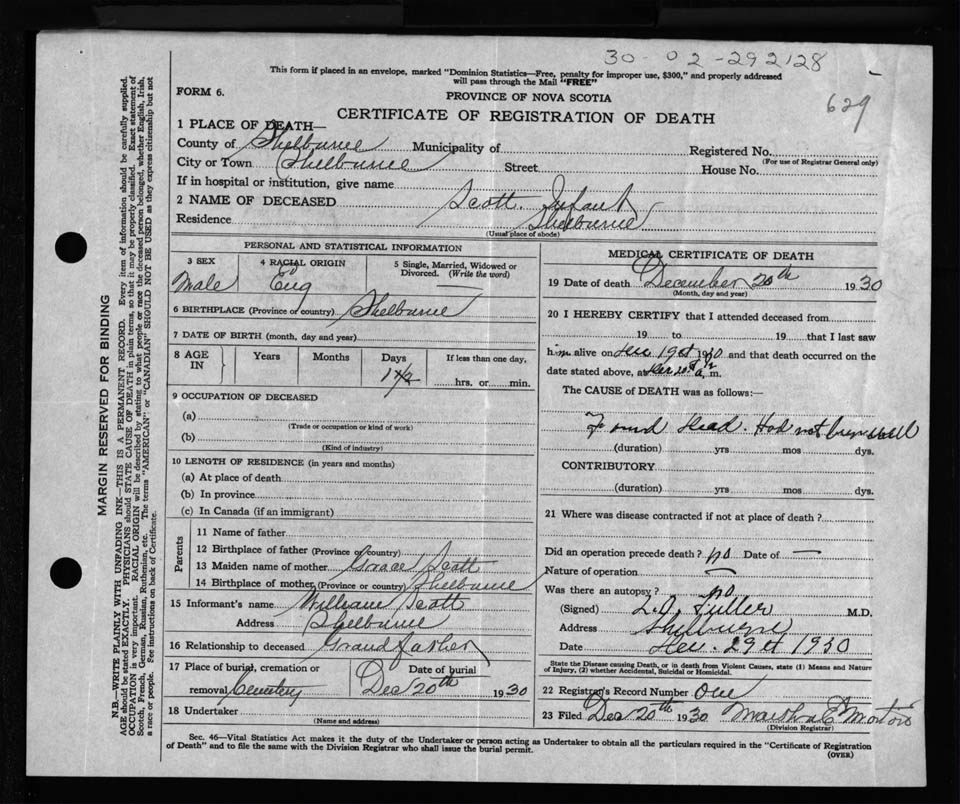 30-02-292128
This form if placed in an envelope, marked "Dominion Statistics—Free, penalty for improper use, $300," and properly addressed
will pass through the Mail "FREE"
629
FORM 6.
PROVINCE OF NOVA SCOTIA
CERTIFICATE OF REGISTRATION OF DEATH
1 PLACE OF DEATH—
County of Shelburne Municipality of Registered No.
(For use of Registrar General only)
City or Town Shelburne Street House No.
If in hospital or institution, give name
2 NAME OF DECEASED Scott. Infant
Residence Shelburne
(Usual place of abode)
PERSONAL AND STATISTICAL INFORMATION
3 SEX 4 RACIAL ORIGIN 5 Single, Married, Widowed or Divorced. (Write the word)
Male Eng —
6 BIRTHPLACE (Province or country) Shelburne
7 DATE OF BIRTH (month, day and year)
8 AGE IN Years Months Days If less than one day,
1½ hrs. or min.
9 OCCUPATION OF DECEASED
(a)
(Trade or occupation or kind of work)
(b)
(Kind of industry)
10 LENGTH OF RESIDENCE (in years and months)
(a) At place of death
(b) In province
(c) In Canada (if an immigrant)
Parents
11 Name of father
12 Birthplace of father (Province or country)
13 Maiden name of mother Grace Scott
14 Birthplace of mother (Province or country) Shelburne
15 Informant's name William Scott
Address Shelburne
16 Relationship to deceased Grandfather
17 Place of burial, cremation or removal Cemetery Date of burial Dec 20th 1930
18 Undertaker
(Name and address)
MEDICAL CERTIFICATE OF DEATH
19 Date of death December 20th 1930
(Month, day and year)
20 I HEREBY CERTIFY that I attended deceased from
19 to 19 that I last saw
him alive on Dec 19th 1930 and that death occurred on the
date stated above, at m.
The CAUSE of DEATH was as follows:—
Found dead. Had not been well
(duration) yrs mos dys.
CONTRIBUTORY
(duration) yrs mos dys.
21 Where was disease contracted if not at place of death?
Did an operation precede death? no Date of —
Nature of operation —
Was there an autopsy? no
(Signed) Fuller M.D.
Address Shelburne
Date Dec. 23rd 1930
State the Disease causing Death, or in death from Violent Causes, state (1) Means and Nature
of Injury, (2) whether Accidental, Suicidal or Homicidal.
22 Registrar's Record Number One
23 Filed Dec 20th 1930 Morton
(Division Registrar)
Sec. 46—Vital Statistics Act makes it duty of the Undertaker or person acting as Undertaker to obtain all the particulars required in the "Certificate of Registration
of Death" and to file the same with the Division Registrar who shall issue the burial permit.
(OVER)
MARGIN RESERVED FOR BINDING
N.B.—WRITE PLAINLY WITH UNFADING INK—THIS IS A PERMANENT RECORD. Every item of information should be carefully supplied.
AGE should be stated EXACTLY. PHYSICIANS should STATE CAUSE OF DEATH in plain terms, so that it may be properly classified. Exact statement of
OCCUPATION is very important. RACIAL ORIGIN will be described by stating to what people or race the deceased person belonged, whether English, Irish,
Scotch, French, German, Russian, Ruthenian, etc. The terms "AMERICAN" or "CANADIAN" SHOULD NOT BE USED as they express citizenship but not
a race or people. See instructions on back of Certificate.